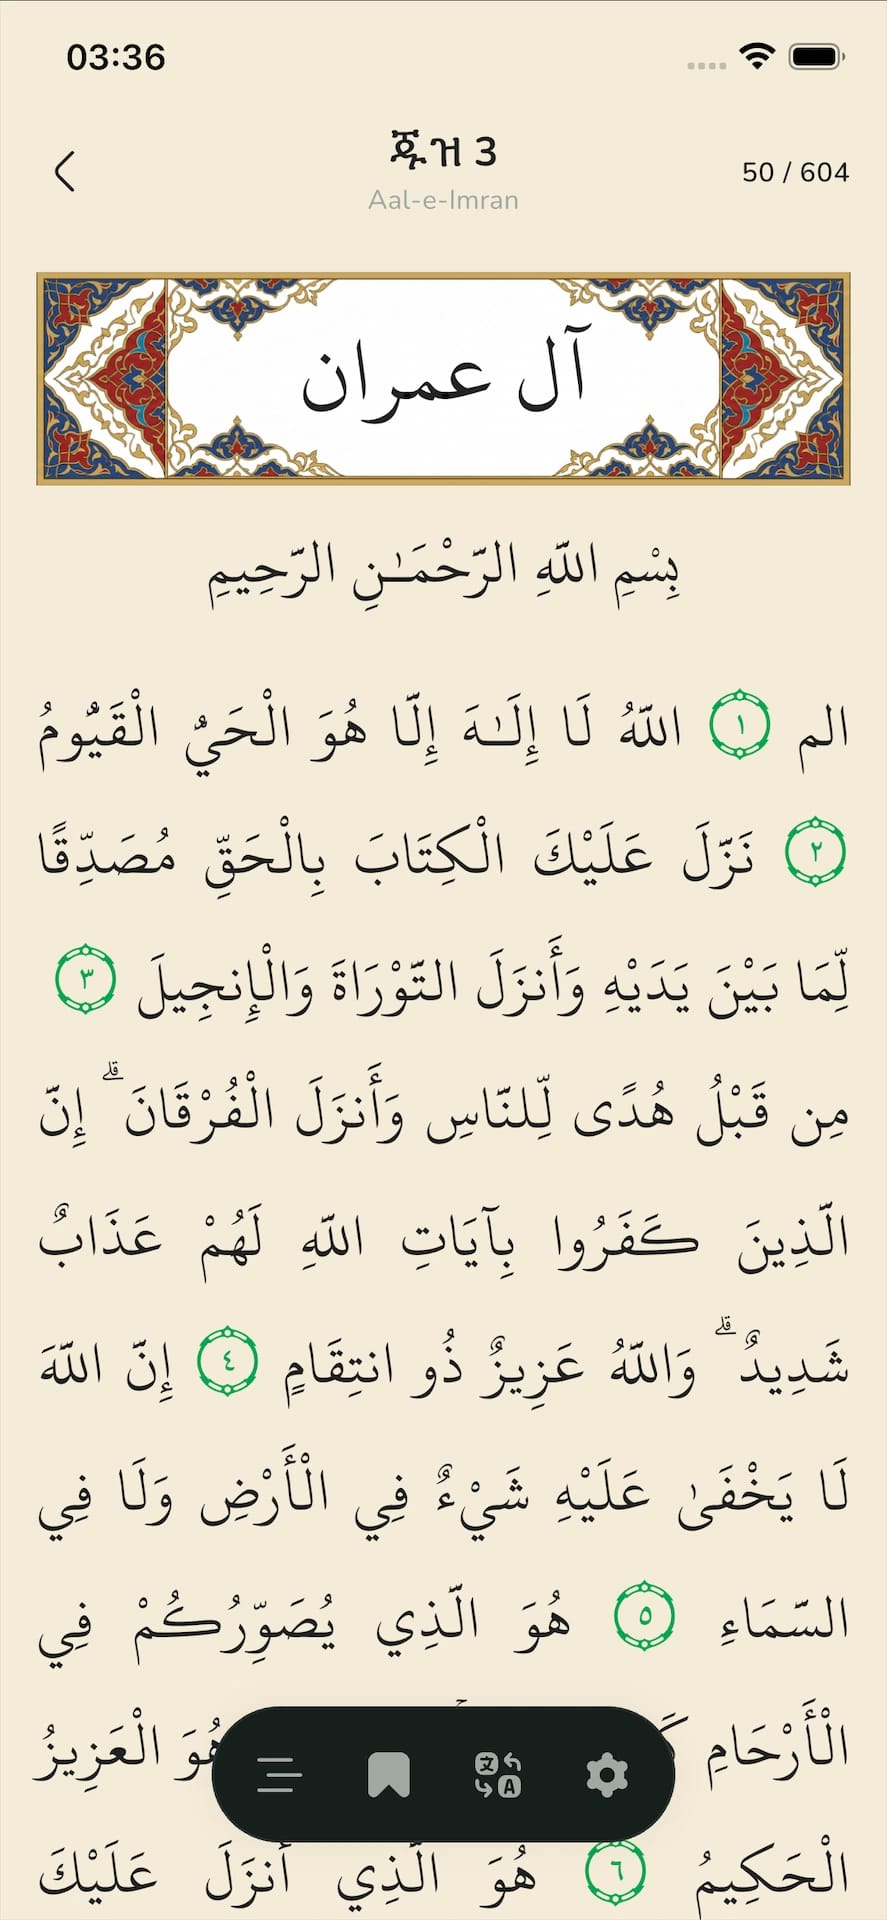 03:36
ጁዝ 3
50 / 604
Aal-e-Imran
آل عمران
بِسْمِ اللَّهِ الرَّحْمَـٰنِ الرَّحِيمِ
الم ١ اللَّهُ لَا إِلَـٰهَ إِلَّا هُوَ الْحَيُّ الْقَيُّومُ
٢ نَزَّلَ عَلَيْكَ الْكِتَابَ بِالْحَقِّ مُصَدِّقًا
لِّمَا بَيْنَ يَدَيْهِ وَأَنزَلَ التَّوْرَاةَ وَالْإِنجِيلَ ٣
مِن قَبْلُ هُدًى لِّلنَّاسِ وَأَنزَلَ الْفُرْقَانَ ۗ إِنَّ
الَّذِينَ كَفَرُوا بِآيَاتِ اللَّهِ لَهُمْ عَذَابٌ
شَدِيدٌ ۗ وَاللَّهُ عَزِيزٌ ذُو انتِقَامٍ ٤ إِنَّ اللَّهَ
لَا يَخْفَىٰ عَلَيْهِ شَيْءٌ فِي الْأَرْضِ وَلَا فِي
السَّمَاءِ ٥ هُوَ الَّذِي يُصَوِّرُكُمْ فِي
الْأَرْحَامِ هُوَ الْعَزِيزُ
الْحَكِيمُ ٦ هُوَ الَّذِي أَنزَلَ عَلَيْكَ